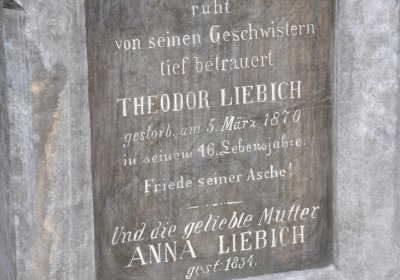 ruht
von seinen Geschwistern
tief betrauert
THEODOR LIEBICH
gestorb. am 5. März 1870
in seinem 46. Lebensjahre.
Friede seiner Asche!
Und die geliebte Mutter
ANNA LIEBICH
gest: 1854.